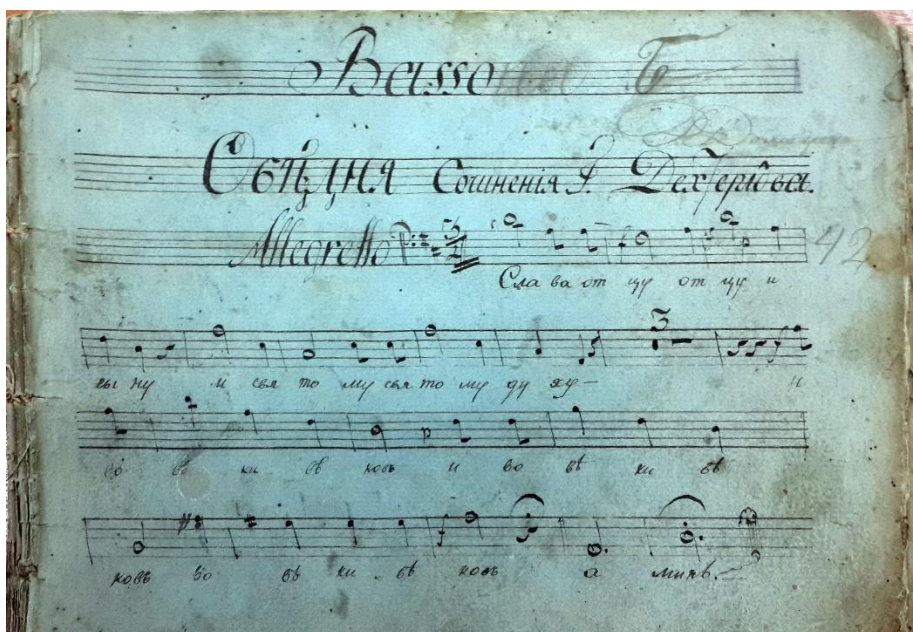 Basso Б
Обѣдня Сочиненія Г. Дехтерiова.
Allegretto 3/4 42
Сла ва от цу от цу и
сы ну и свя то му свя то му ду ху —
3
и
во вѣ ки вѣ ковъ и во вѣ ки вѣ
ковъ во вѣ ки вѣ ковъ а минь.